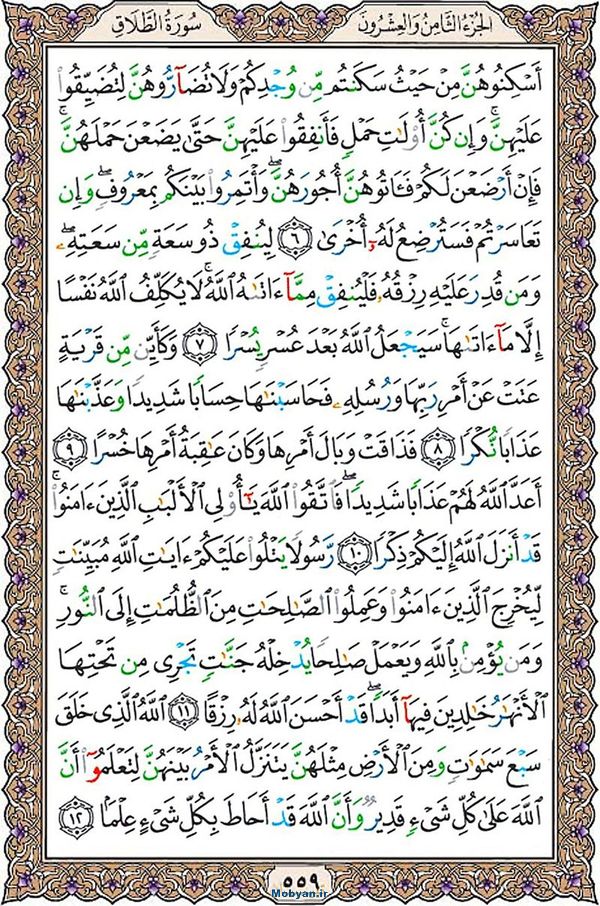 الجزء الثامن والعشرون
سورة الطلاق
أَسْكِنُوهُنَّ مِنْ حَيْثُ سَكَنتُم مِّن وُجْدِكُمْ وَلَا تُضَآرُّوهُنَّ لِتُضَيِّقُوا۟
عَلَيْهِنَّ ۚ وَإِن كُنَّ أُو۟لَـٰتِ حَمْلٍ فَأَنفِقُوا۟ عَلَيْهِنَّ حَتَّىٰ يَضَعْنَ حَمْلَهُنَّ ۚ
فَإِنْ أَرْضَعْنَ لَكُمْ فَـَٔاتُوهُنَّ أُجُورَهُنَّ ۖ وَأْتَمِرُوا۟ بَيْنَكُم بِمَعْرُوفٍ ۖ وَإِن
تَعَاسَرْتُمْ فَسَتُرْضِعُ لَهُۥٓ أُخْرَىٰ ٦ لِيُنفِقْ ذُو سَعَةٍ مِّن سَعَتِهِۦ ۖ
وَمَن قُدِرَ عَلَيْهِ رِزْقُهُۥ فَلْيُنفِقْ مِمَّآ ءَاتَىٰهُ ٱللَّهُ ۚ لَا يُكَلِّفُ ٱللَّهُ نَفْسًا
إِلَّا مَآ ءَاتَىٰهَا ۚ سَيَجْعَلُ ٱللَّهُ بَعْدَ عُسْرٍ يُسْرًا ٧ وَكَأَيِّن مِّن قَرْيَةٍ
عَتَتْ عَنْ أَمْرِ رَبِّهَا وَرُسُلِهِۦ فَحَاسَبْنَـٰهَا حِسَابًا شَدِيدًا وَعَذَّبْنَـٰهَا
عَذَابًا نُّكْرًا ٨ فَذَاقَتْ وَبَالَ أَمْرِهَا وَكَانَ عَـٰقِبَةُ أَمْرِهَا خُسْرًا ٩
أَعَدَّ ٱللَّهُ لَهُمْ عَذَابًا شَدِيدًا ۖ فَٱتَّقُوا۟ ٱللَّهَ يَـٰٓأُو۟لِى ٱلْأَلْبَـٰبِ ٱلَّذِينَ ءَامَنُوا۟ ۚ
قَدْ أَنزَلَ ٱللَّهُ إِلَيْكُمْ ذِكْرًا ١٠ رَّسُولًا يَتْلُوا۟ عَلَيْكُمْ ءَايَـٰتِ ٱللَّهِ مُبَيِّنَـٰتٍ
لِّيُخْرِجَ ٱلَّذِينَ ءَامَنُوا۟ وَعَمِلُوا۟ ٱلصَّـٰلِحَـٰتِ مِنَ ٱلظُّلُمَـٰتِ إِلَى ٱلنُّورِ ۚ
وَمَن يُؤْمِنۢ بِٱللَّهِ وَيَعْمَلْ صَـٰلِحًا يُدْخِلْهُ جَنَّـٰتٍ تَجْرِى مِن تَحْتِهَا
ٱلْأَنْهَـٰرُ خَـٰلِدِينَ فِيهَآ أَبَدًا ۖ قَدْ أَحْسَنَ ٱللَّهُ لَهُۥ رِزْقًا ١١ ٱللَّهُ ٱلَّذِى خَلَقَ
سَبْعَ سَمَـٰوَٰتٍ وَمِنَ ٱلْأَرْضِ مِثْلَهُنَّ يَتَنَزَّلُ ٱلْأَمْرُ بَيْنَهُنَّ لِتَعْلَمُوٓا۟ أَنَّ
ٱللَّهَ عَلَىٰ كُلِّ شَىْءٍ قَدِيرٌ وَأَنَّ ٱللَّهَ قَدْ أَحَاطَ بِكُلِّ شَىْءٍ عِلْمًۢا ١٢
٥٥٩
Mobyan.ir